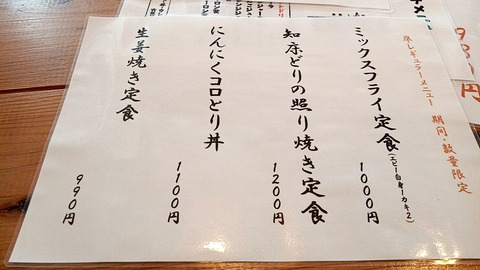 準レギュラーメニュー 期間・数量限定
ミックスフライ定食(エビ1・白身1・カキ2) 1000円
知床どりの照り焼き定食 1200円
にんにくコロとり丼 1100円
生姜焼き定食 990円